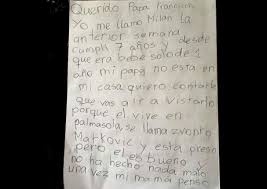 Querido Papa Francisco
Yo me llamo Milan La
anterior semana
cumpli 7 años y desde
que era bebe solo de 1
año mi papa no esta en
mi casa quiero contarte
que vas a ir a visitarlo
porque el vive en
palmasola, se llama zvonko
Matkovic y esta preso
pero el es bueno y
no ha hecho nada malo
una vez mi mamá pense